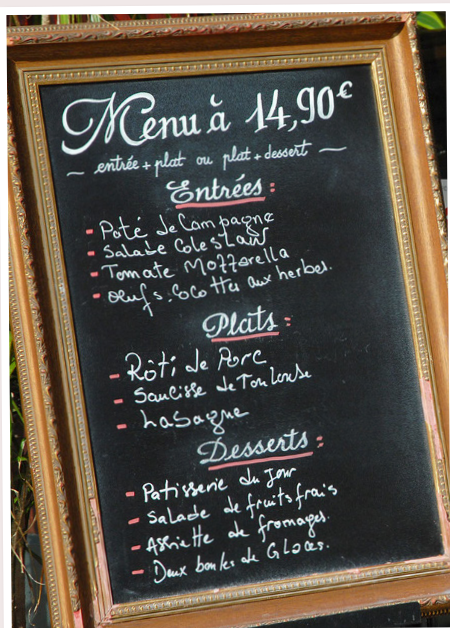 Menu à 14,90€
~ entrée + plat ou plat + dessert ~
Entrées :
- Paté de Campagne
- Salade Coleslaw
- Tomate Mozzarella
- Oeufs Cocottes aux herbes.
Plats :
- Rôti de Porc
- Saucisse de Toulouse
- Lasagne
Desserts :
- Patisserie du Jour
- Salade de fruits frais
- Assiette de fromages.
- Deux boules de Glaces.